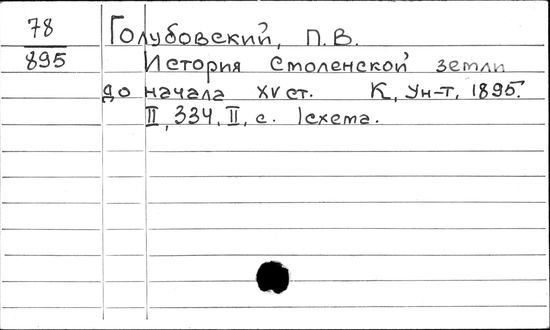 78
Голубовский, П.В.
895
История Смоленской земли
до начала XV ст. К, Ун-т, 1895.
II, 334, II, с. 1схема.